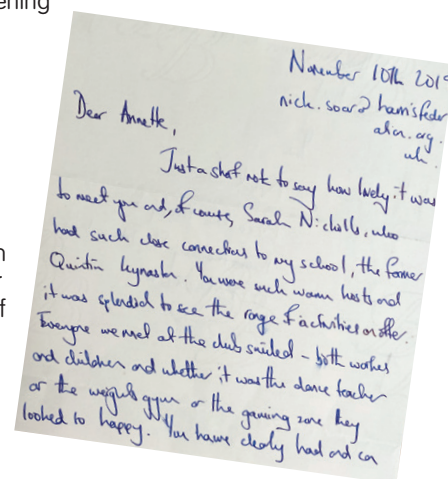 ening
November 10th 2019
nick.soar@harrisfeder
ation.org.
uk.
Dear Annette,
Just a short note to say how lovely it was
to meet you and, of course, Sarah Nicholls, who
had such close connections to my school, the former
Quintin Kynaston. You were such warm hosts and
it was splendid to see the range of activities on offer.
Everyone we met at the club smiled - both workers
and children and whether it was the dance teacher
or the weights gym or the gaming zone they
looked so happy. You have clearly had and can
n
r
f